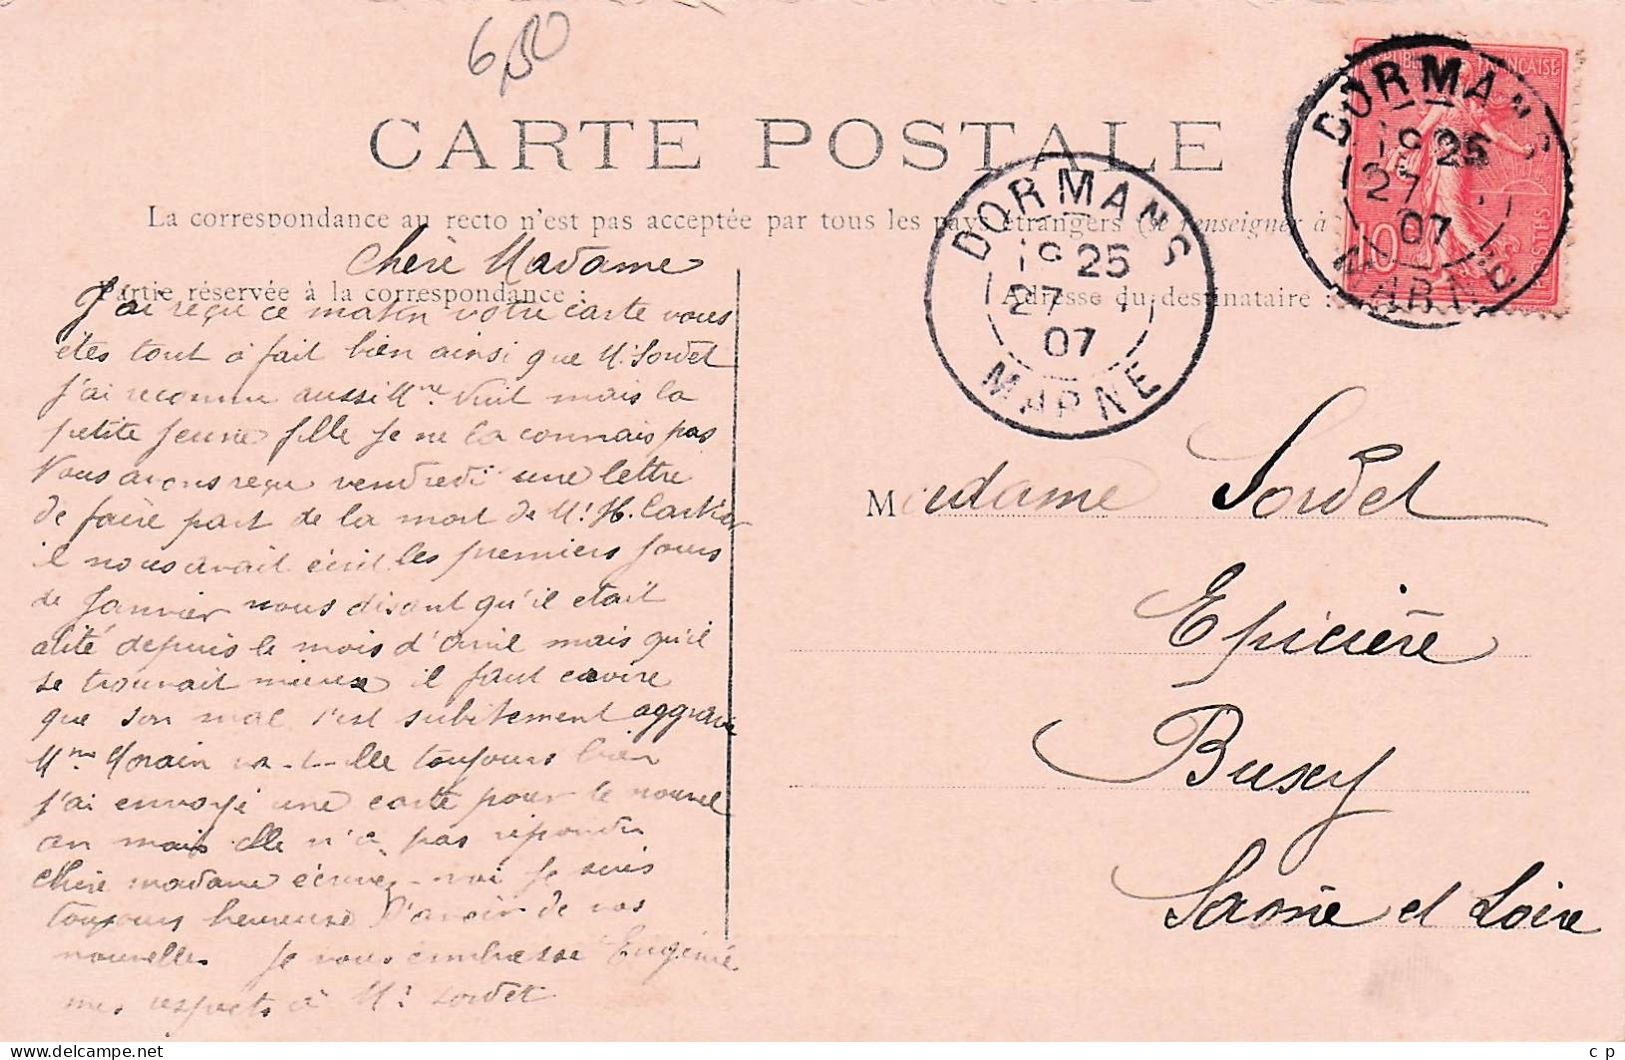 6,50
CARTE POSTALE
La correspondance au recto n'est pas acceptée par tous les pays étrangers (se renseigner à
Partie réservée à la correspondance :
Adresse du destinataire :
RÉPUBLIQUE FRANÇAISE
10
POSTES
DORMANS
25
27
07
MARNE
DORMANS
25
27
07
MARNE
Chère Madame
J'ai reçu ce matin votre carte vous
êtes tout à fait bien ainsi que Mr Sordet
j'ai reconnu aussi Mme Vuil mais la
petite jeune fille je ne la connais pas
Nous avons reçu vendredi une lettre
de faire part de la mort de Mr H. Cartier
il nous avait écrit les premiers jours
de Janvier nous disant qu'il était
alité depuis le mois d'Avril mais qu'il
se trouvait mieux il faut croire
que son mal s'est subitement aggravé
Mme Morain va-t-elle toujours bien
j'ai envoyé une carte pour le nouvel
an mais elle n'a pas répondu
chère madame écrivez-moi je suis
toujours heureuse d'avoir de vos
nouvelles Je vous embrasse Eugénie
mes respects à Mr Sordet
Madame Sordet
Epicière
Buxy
Saone et Loire
c p